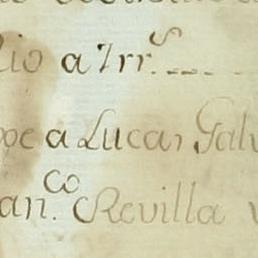 lio a 7 rr.s
pe a Lucas Galv
an.co Revilla v